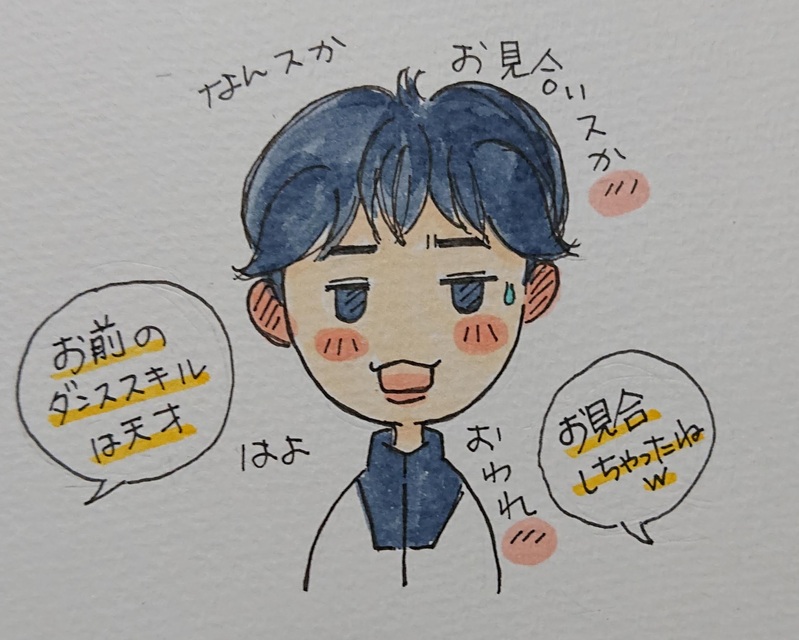 なんスか
お見合い
スか
お前の
ダンススキル
は天才
はよ
おわれ
お見合
しちゃったね
w